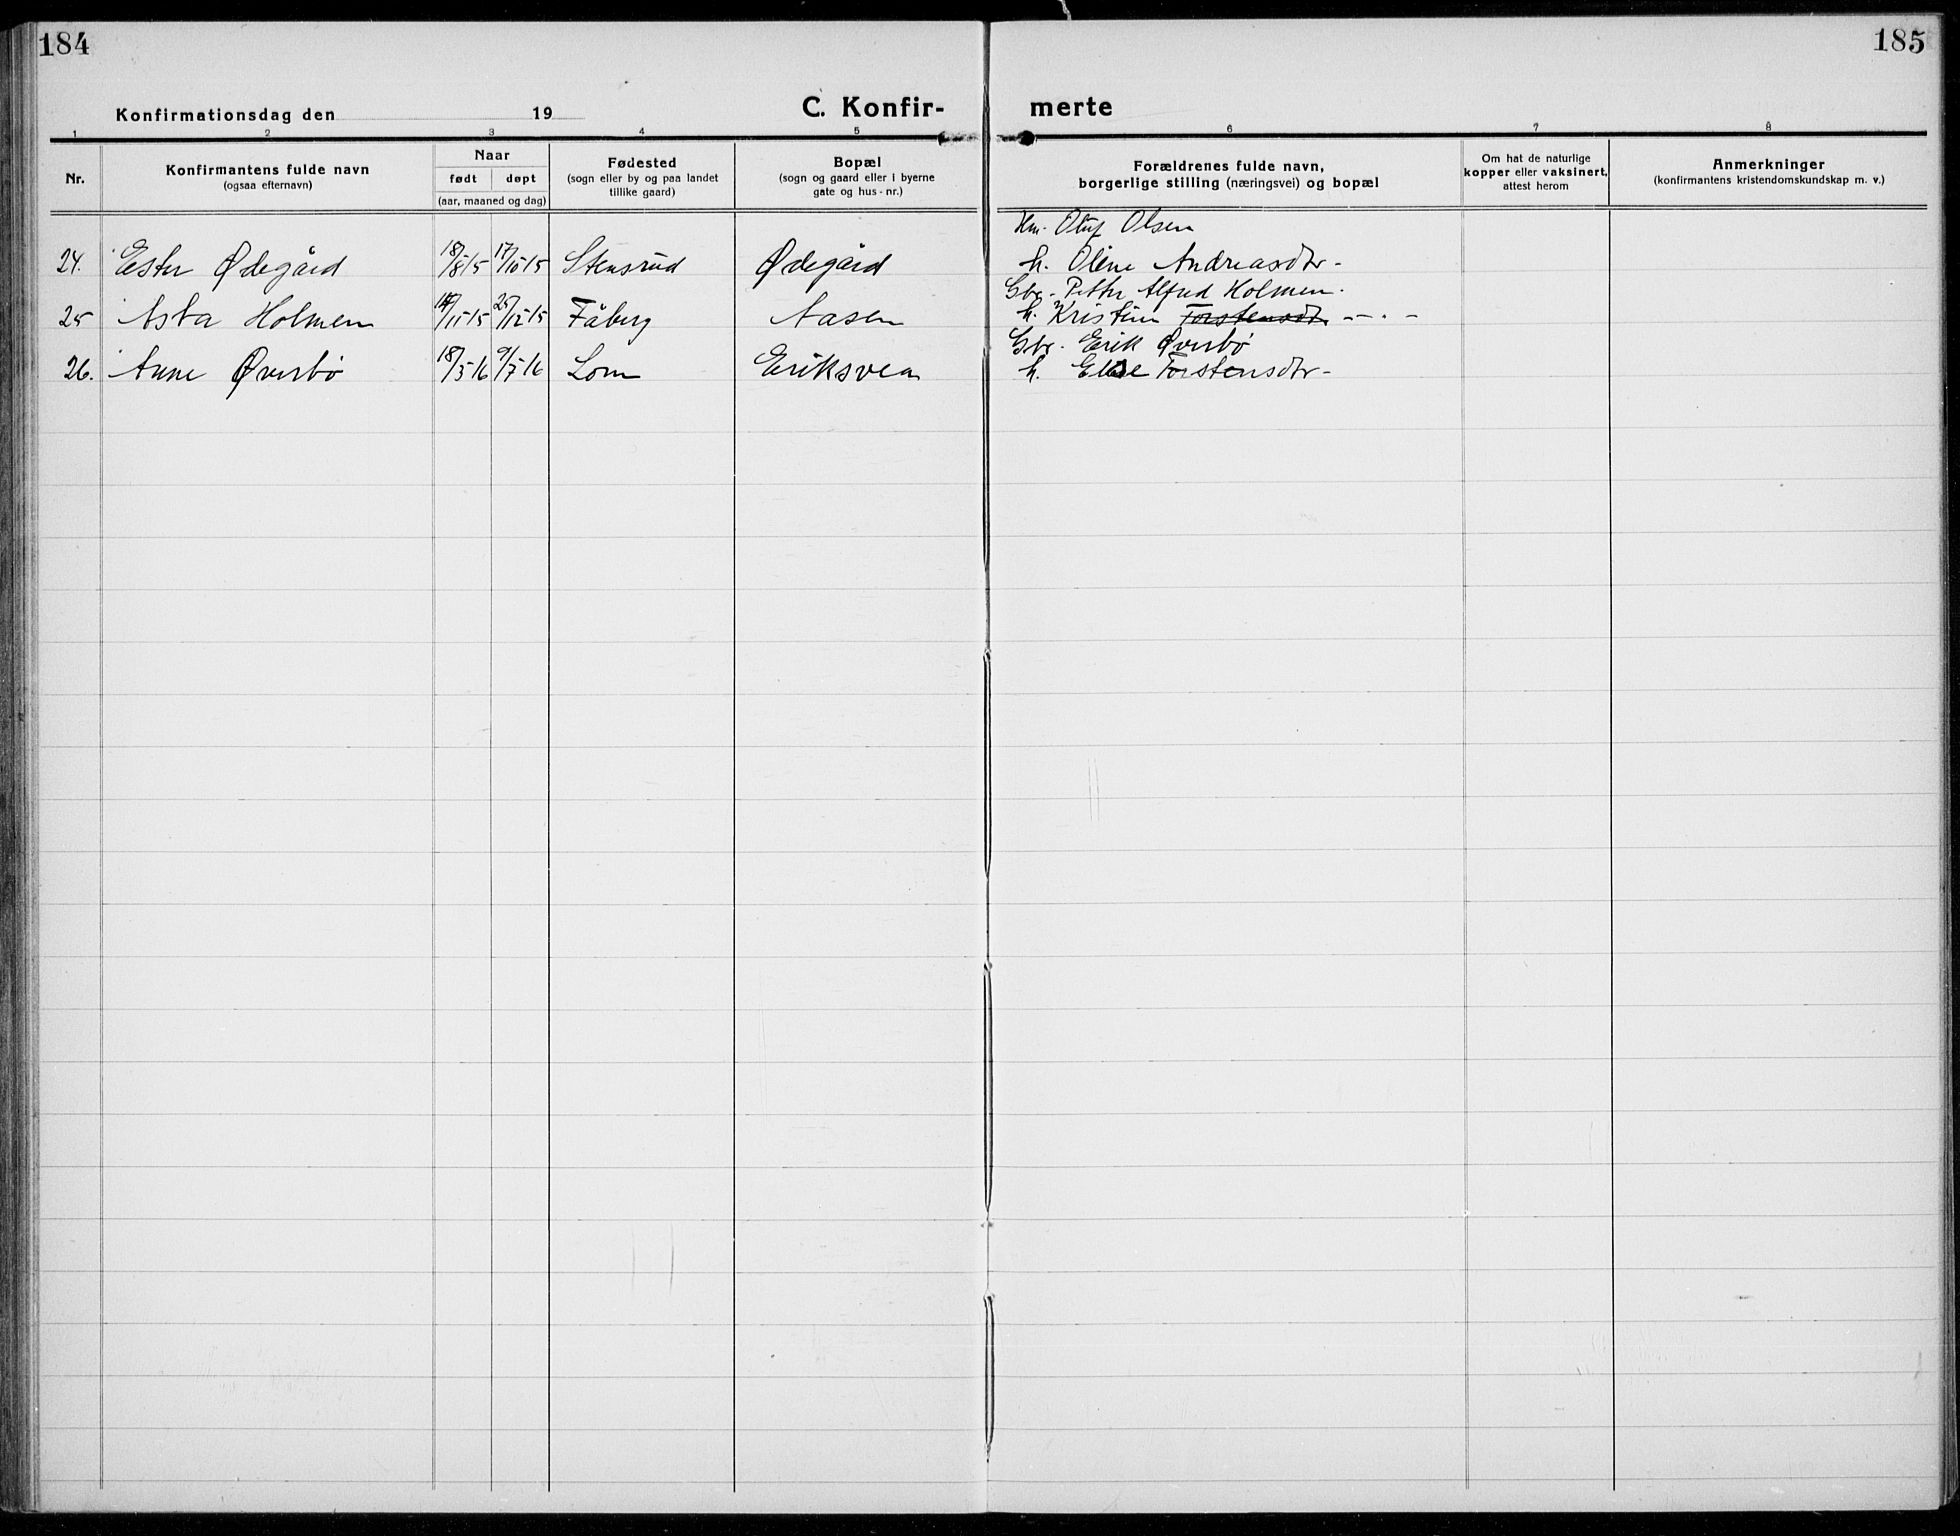 184
185
Konfirmationsdag den 19
C. Konfir-
merte
1 2 3 4 5 6 7 8
Nr.
Konfirmantens fulde navn
(ogsaa efternavn)
Naar
født døpt
(aar, maaned og dag)
Fødested
(sogn eller by og paa landet
tillike gaard)
Bopæl
(sogn og gaard eller i byerne
gate og hus-nr.)
Forældrenes fulde navn,
borgerlige stilling (næringsvei) og bopæl
Om hat de naturlige
kopper eller vaksinert,
attest herom
Anmerkninger
(konfirmantens kristendomskundskap m. v.)
Oluf Olsen
24. Ester Ødegård 18/8 15 17/10 15 Stensrud Ødegård h. Oline Andreasdtr-
Gbr. Petter Alfred Holmen.
25 Asta Holmen /11 15 25/12 15 Fåberg Aasen h. Kristine Torstensdt. - . -
Gbr. Erik Øverbø
26. Anne Øverbø 18/3 16 9/7 16 Lom Eriksvea h. Else Torstensdtr-